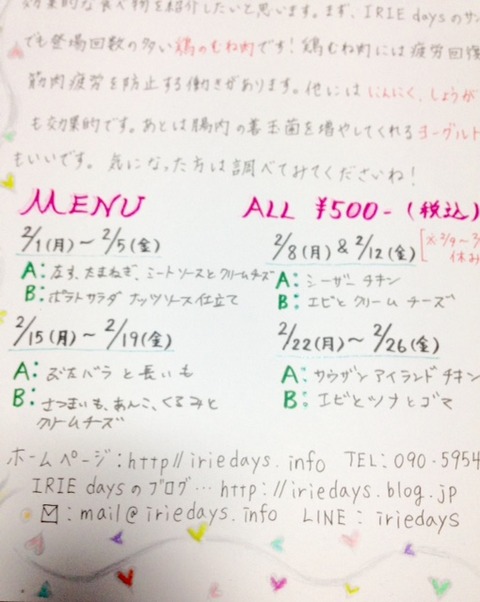 効果的な食べ物を紹介したいと思います。まず、IRIE daysのサン
でも登場回数の多い鶏のむね肉です！鶏むね肉には疲労回復
筋肉疲労を防止する働きがあります。他にはにんにく、しょうが
も効果的です。あとは腸内の善玉菌を増やしてくれるヨーグルト
もいいです。気になった方は調べてみてくださいね！
MENU ALL ¥500-(税込)
2/1(月)～2/5(金)
A:なす、たまねぎ、ミートソースとクリームチーズ
B:ポテトサラダ ナッツソース仕立て
2/8(月)&2/12(金) [※2/9～
休み
A:シーザーチキン
B:エビとクリームチーズ
2/15(月)～2/19(金)
A:ぶたバラと長いも
B:さつまいも、あんこ、くるみと
クリームチーズ
2/22(月)～2/26(金)
A:サウザンアイランドチキン
B:エビとツナとゴマ
ホームページ:http//iriedays.info TEL:090-5954
IRIE daysのブログ…http://iriedays.blog.jp
✉:mail@iriedays.info LINE:iriedays